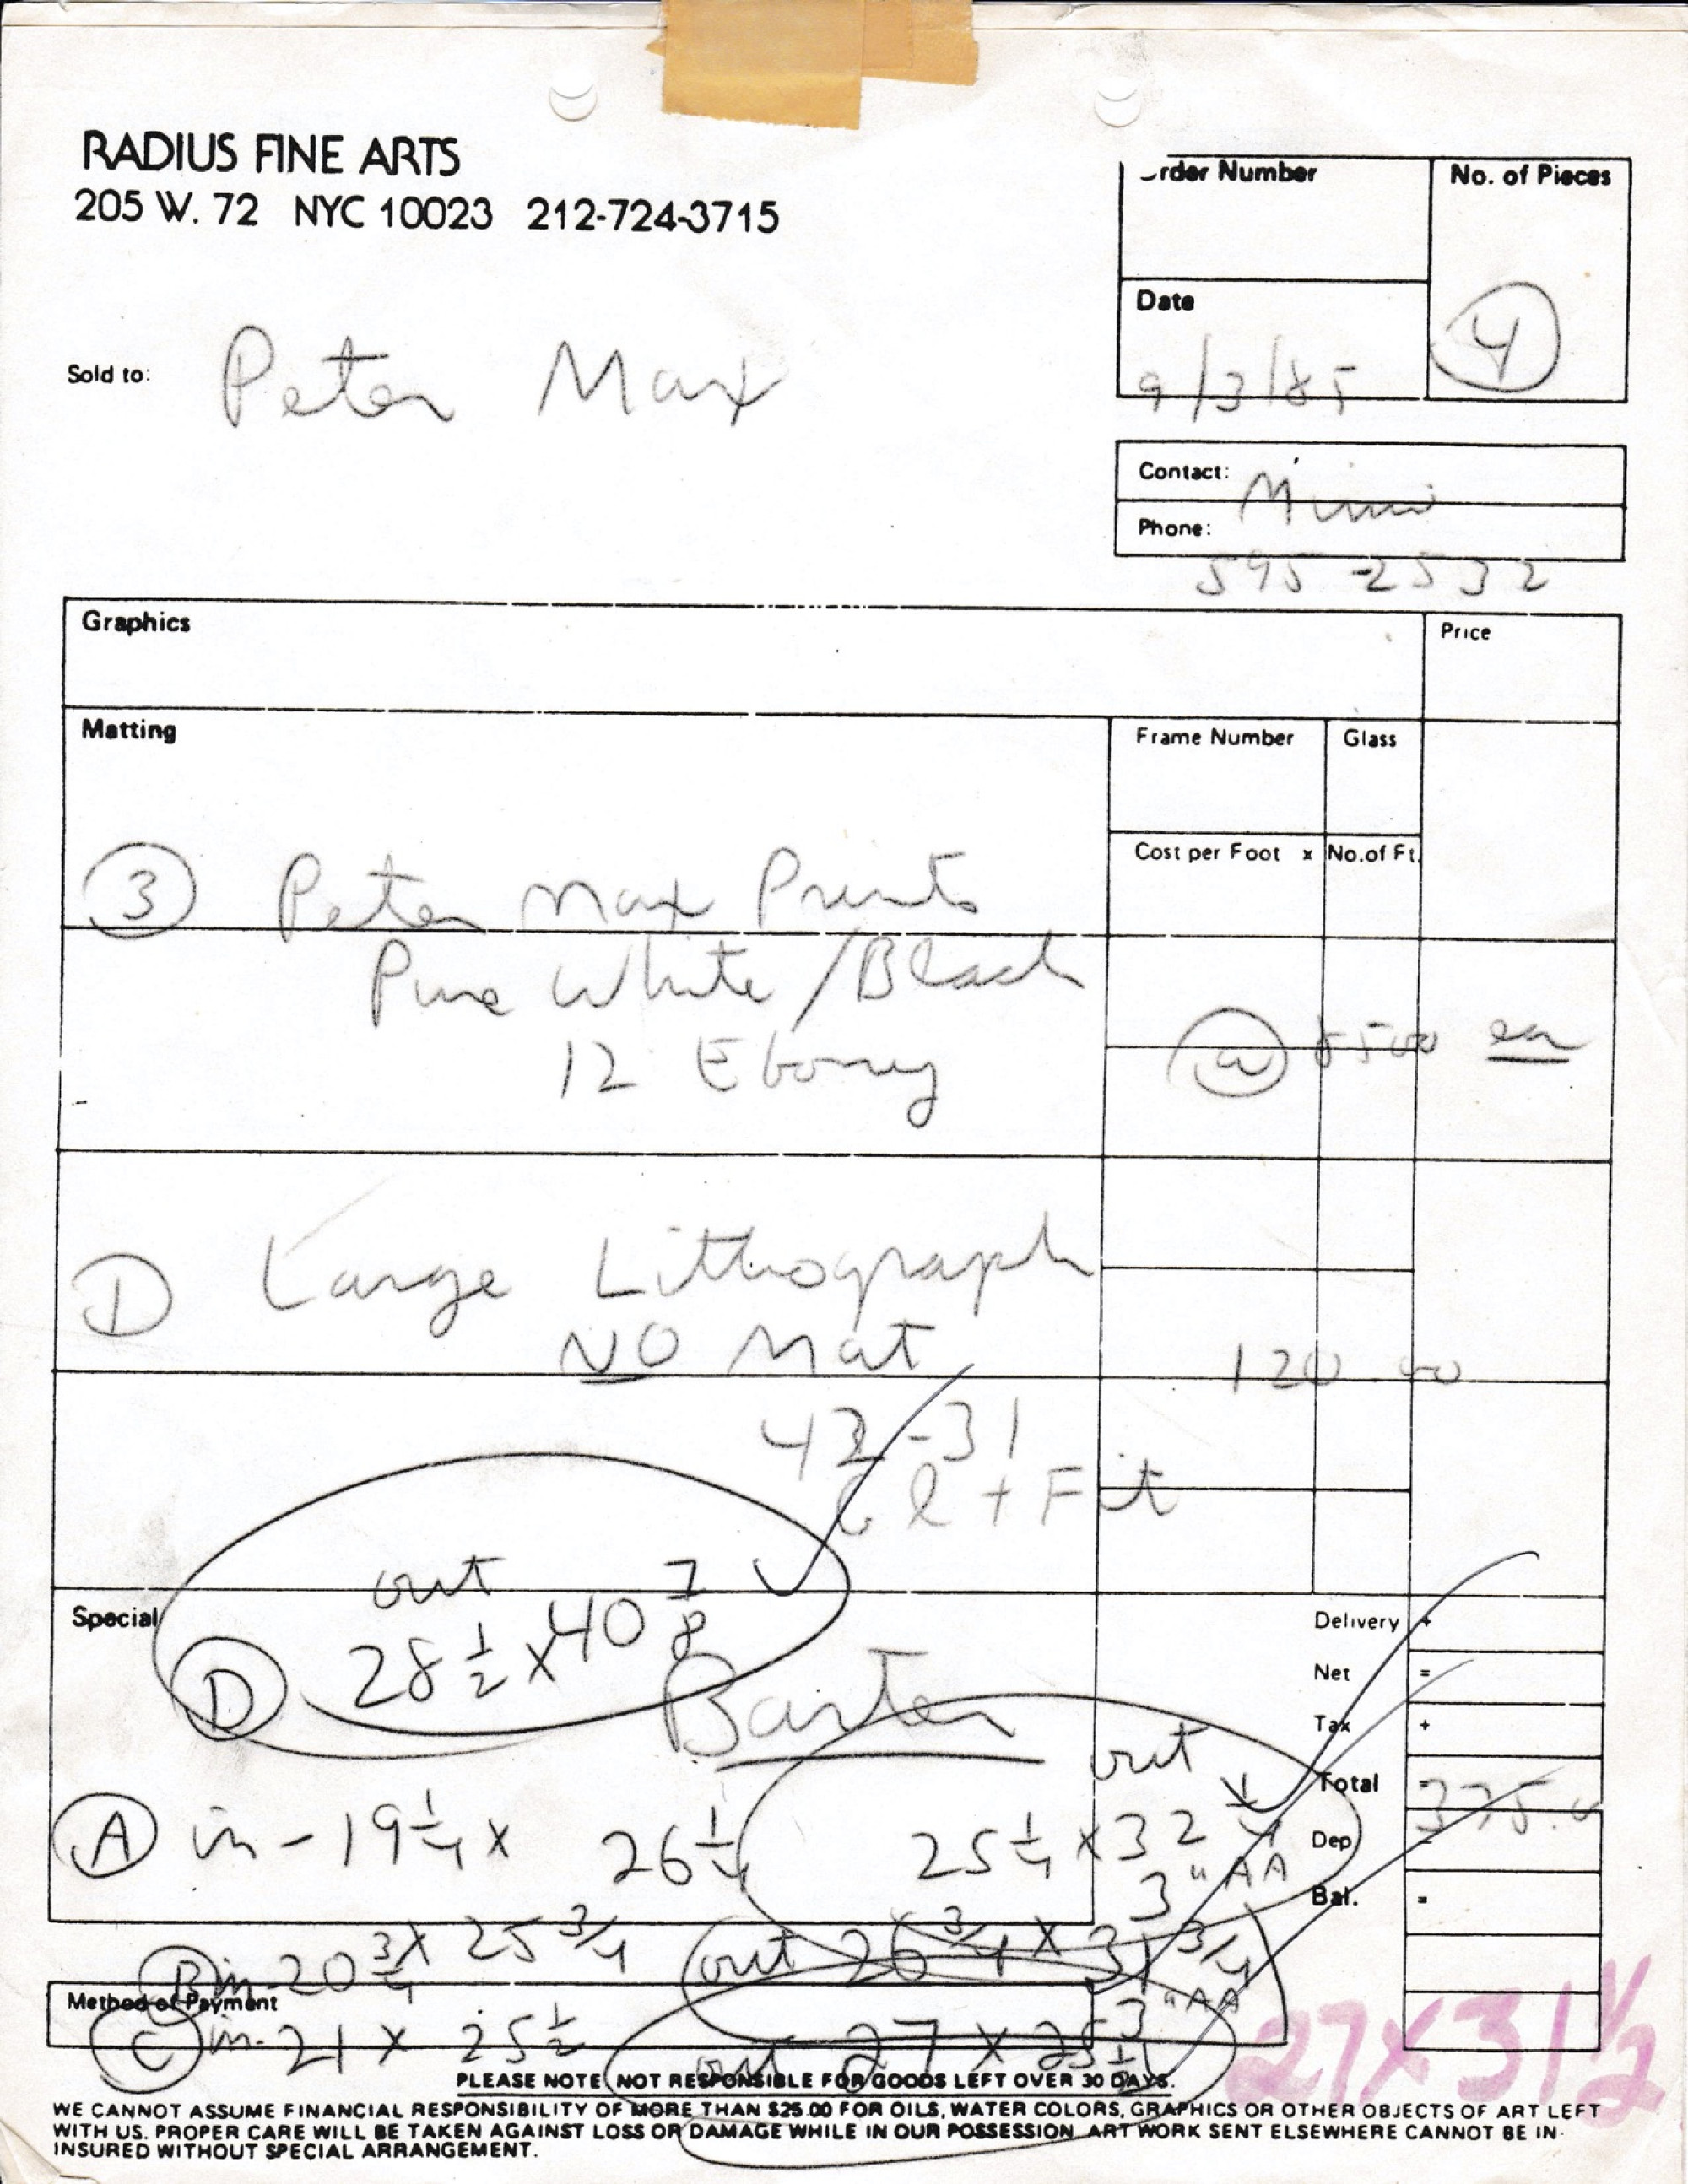 RADIUS FINE ARTS
205 W. 72 NYC 10023 212-724-3715
rder Number
No. of Pieces
4
Date
9/3/85
Sold to: Peter Max
Contact: Mimi
Phone:
595-2532
Graphics
Price
Matting
Frame Number
Glass
Cost per Foot x
No. of Ft.
3 Peter Max Prints
Pure White/Black
12 Ebony
@ 8500 ea
D Large Lithograph
NO Mat
120.00
42-31
Gl + Fit
out
D 28 1/2 x 40 7/8
Special
Barter
Delivery +
Net =
Tax +
Total = 375.
Dep -
Bal. =
A in - 19 1/4 x 26 1/4
out
25 1/4 x 32 1/4
3" AA
B in - 20 3/4 x 25 3/4
out 26 3/4 x 31 3/4
3" AA
Method of Payment
C in - 21 x 25 1/2
out 27 x
27 x 31 1/2
PLEASE NOTE NOT RESPONSIBLE FOR GOODS LEFT OVER 30 DAYS.
WE CANNOT ASSUME FINANCIAL RESPONSIBILITY OF MORE THAN $25.00 FOR OILS, WATER COLORS, GRAPHICS OR OTHER OBJECTS OF ART LEFT
WITH US. PROPER CARE WILL BE TAKEN AGAINST LOSS OR DAMAGE WHILE IN OUR POSSESSION ART WORK SENT ELSEWHERE CANNOT BE IN-
INSURED WITHOUT SPECIAL ARRANGEMENT.